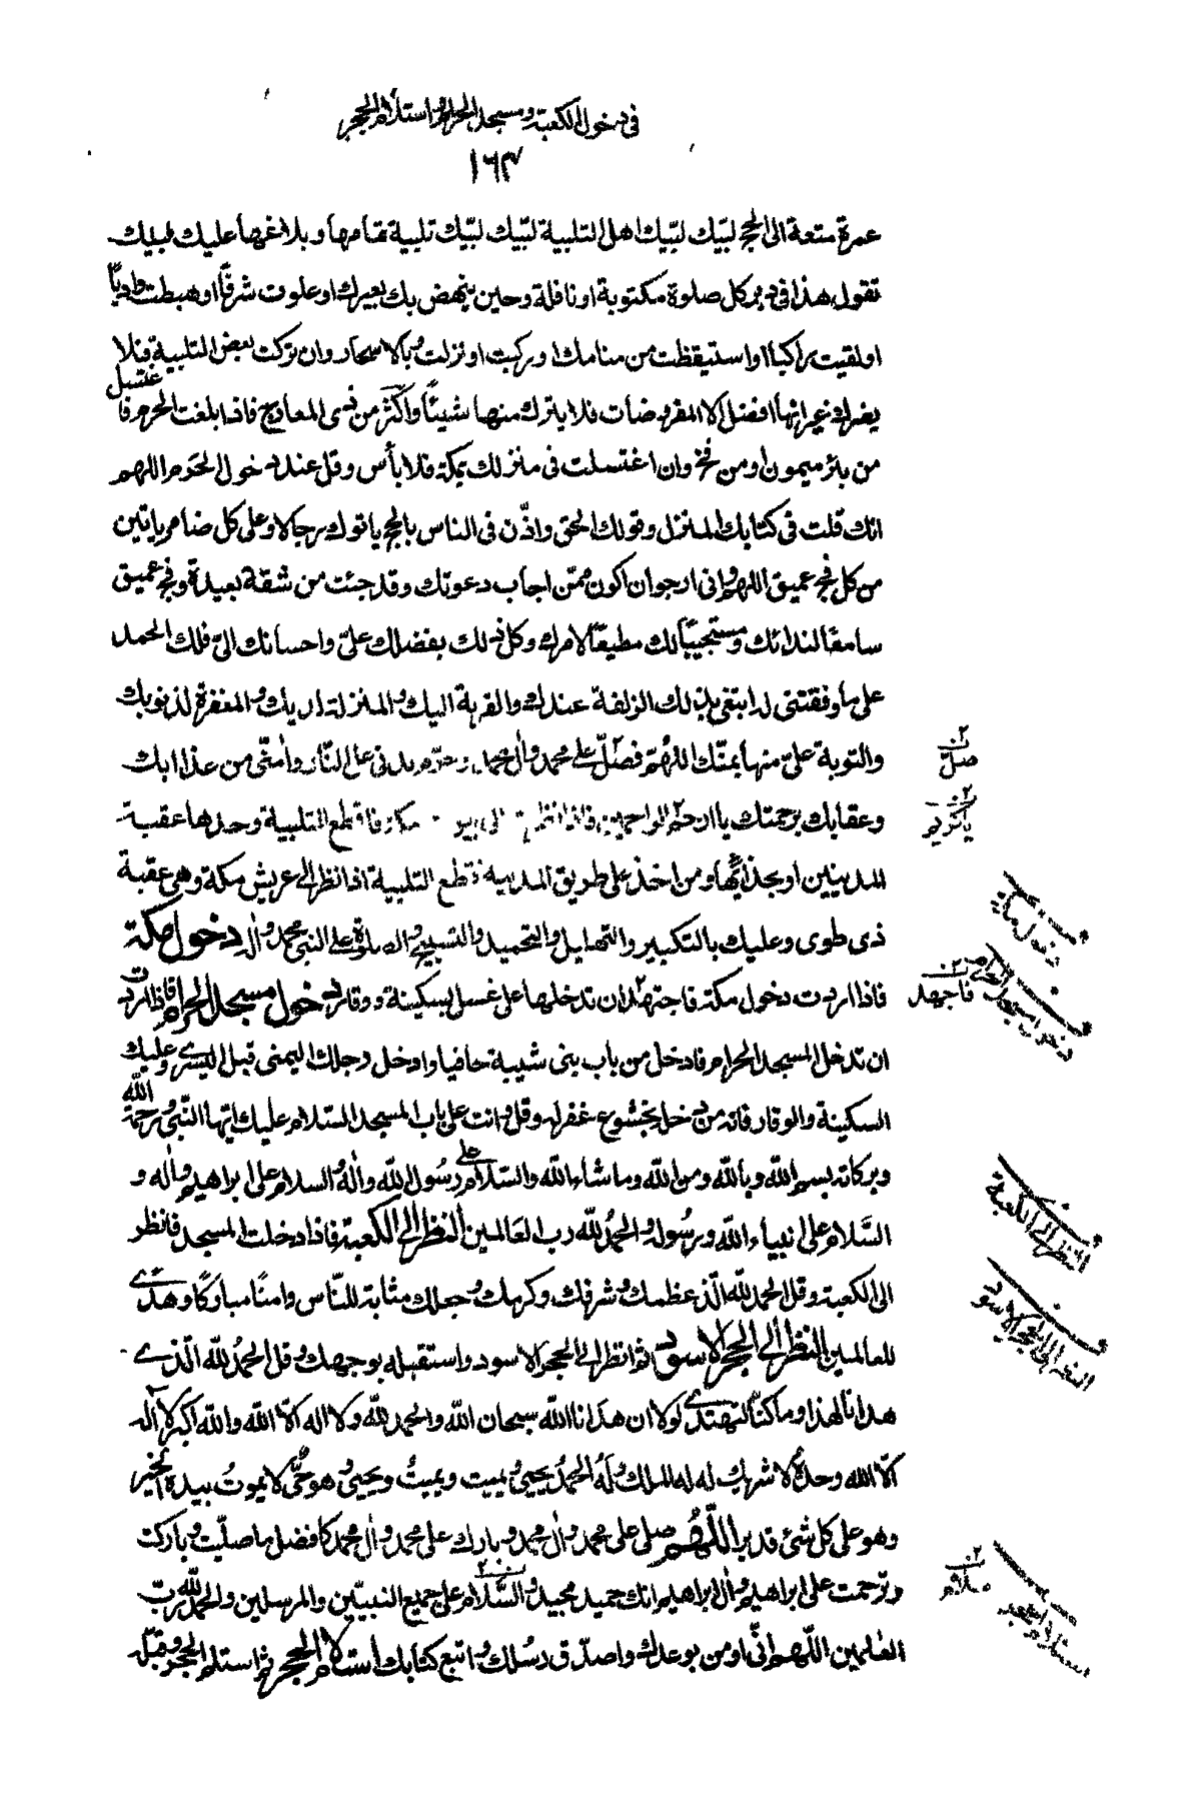 في دخول الكعبة ومسجد الحرام واستلام الحجر
١٦٣
عمرة متعة الى الحج لبّيك لبّيك اهل التلبية لبّيك لبّيك تلبية تمامها وبلاغها عليك لبيك
تقول هذا فى دبر كل صلوة مكتوبة او نافلة وحين ينهض بك بعيرك او علوت شرفًا او هبطت واديًا
او لقيت راكبا او استيقظت من منامك او ركبت او نزلت وبالاسحار وان تركت بعض التلبية فلا
يضرك غير انها افضل الا المفروضات فلا يترك منها شيئًا واكثر من ذى المعارج فاذا بلغت الحرم فاغتسل
من بئر ميمون او من فخ وان اغتسلت فى منزلك بمكة فلا بأس وقل عند دخول الحرم اللهم
انك قلت فى كتابك المنزل وقولك الحق واذّن فى الناس بالحج ياتوك رجالا وعلى كل ضامر ياتين
من كل فج عميق اللهم وانى ارجو ان اكون ممّن اجاب دعوتك وقد جئت من شقة بعيدة وفج عميق
سامعًا لندائك ومستجيبًا لك مطيعًا لامرك وكل ذلك بفضلك علىّ واحسانك الىّ فلك الحمد
على ما وفقتنى له ابتغى بذلك الزلفة عندك والقربة اليك والمنزلة لديك والمغفرة لذنوبك
والتوبة علىّ منها بمنّك اللهمّ فصلّ على محمد وال محمد وحرّم بدنى على النّار وامنّى من عذابك
وعقابك برحمتك يا ارحم الراحمين فاذا نظرت الى بيوت مكة فاقطع التلبية وحدها عقبة
المدينين او بحذائها ومن اخذ على طريق المدينة قطع التلبية اذا نظر الى عريش مكة وهى عقبة
ذى طوى وعليك بالتكبير والتهليل والتحميد والتسبيح والصلوة على النبى محمد واله دخول مكة
فاذا اردت دخول مكة فاجتهد ان تدخلها على غسل بسكينة ووقار دخول مسجد الحرام فاذا اردت
ان تدخل المسجد الحرام فادخل من باب بنى شيبة حافيا وادخل رجلك اليمنى قبل اليسرى وعليك
السكينة والوقار فانه من دخل بخشوع غفر له وقل وانت على باب المسجد السّلام عليك ايّها النّبى ورحمة الله
وبركاته بسم اللّه وباللّه ومن اللّه وما شاء اللّه والسّلام على رسول اللّه واله والسلام على ابراهيم واله و
السّلام على انبياء اللّه ورسوله والحمد للّه رب العالمين النظر الى الكعبة فاذا دخلت المسجد فانظر
الى الكعبة وقل الحمد للّه الّذى عظمك وشرفك وكرمك وجعلك مثابة للنّاس وامنًا مباركًا وهدًى
للعالمين النظر الى الحجر الاسود ثم انظر الى الحجر الاسود واستقبله بوجهك وقل الحمد للّه الّذى
هدانا لهذا وما كنّا لنهتدى لولا ان هدانا اللّه سبحان اللّه والحمد للّه ولا اله الّا اللّه واللّه اكبر لا اله
الّا الله وحده لا شريك له له الملك وله الحمد يحيى ويميت ويميت ويحيى وهو حىّ لا يموت بيده الخير
وهو على كل شئ قدير اللّهم صلى على محمد وال محمد وبارك على محمد وال محمد كافضل ما صلّيت وباركت
وترحمت على ابراهيم وال ابراهيم انك حميد مجيد والسّلام على جميع النبيّين والمرسلين والحمد للّه ربّ
العالمين اللّهم انّى اومن بوعدك واصدّق رسلك واتبع كتابك استلام الحجر ثم استلم الحجر وقبّله
صلّ
يا كريم
دخول مكة
دخول مسجد الحرام
فاجهد
النظر الى الكعبة
النظر الى الحجر الاسود
سلام
استلام الحجر